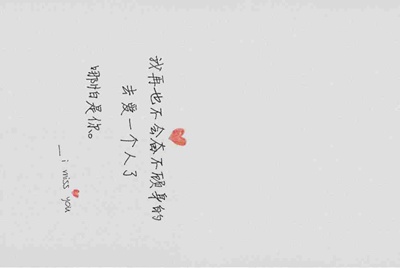 我再也不会奋不顾身的
去爱一个人了
哪怕是你。
— i miss you